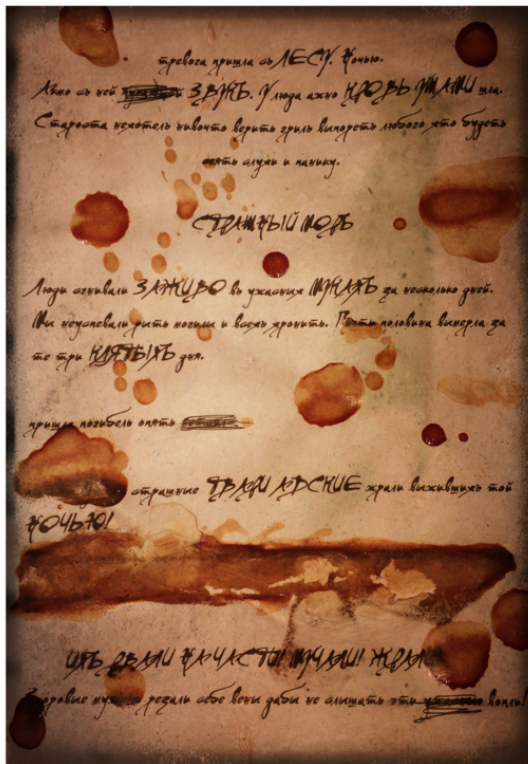 тревога пришла съ ЛЕСУ. Ночью.
Ажно съ ней ЗВУКЪ. У люда ажно КРОВЬ УШАМИ шла.
Староста нехотелъ нивочто верить грилъ выпореть любого хто будетъ
сеять слухи и панику.
СТРАШНЫЙ МОРЪ
Люди сгнивали ЗАЖИВО въ ужасных МУКАХЪ за несколько дней.
Мы неуспевали рыть могилы и всехъ хронить. Почти половина вымерла за
те три КЛЯТЫХЪ дня.
пришла погибель опять
страшные ТВАРИ АДСКИЕ жрали выжившихъ той
НОЧЬЮ!
ИХЪ РВАЛИ НА ЧАСТИ! МУЧАЛИ! ЖРАЛИ
Здоровые мужики резали себе вены дабы не слышать эти вопли!